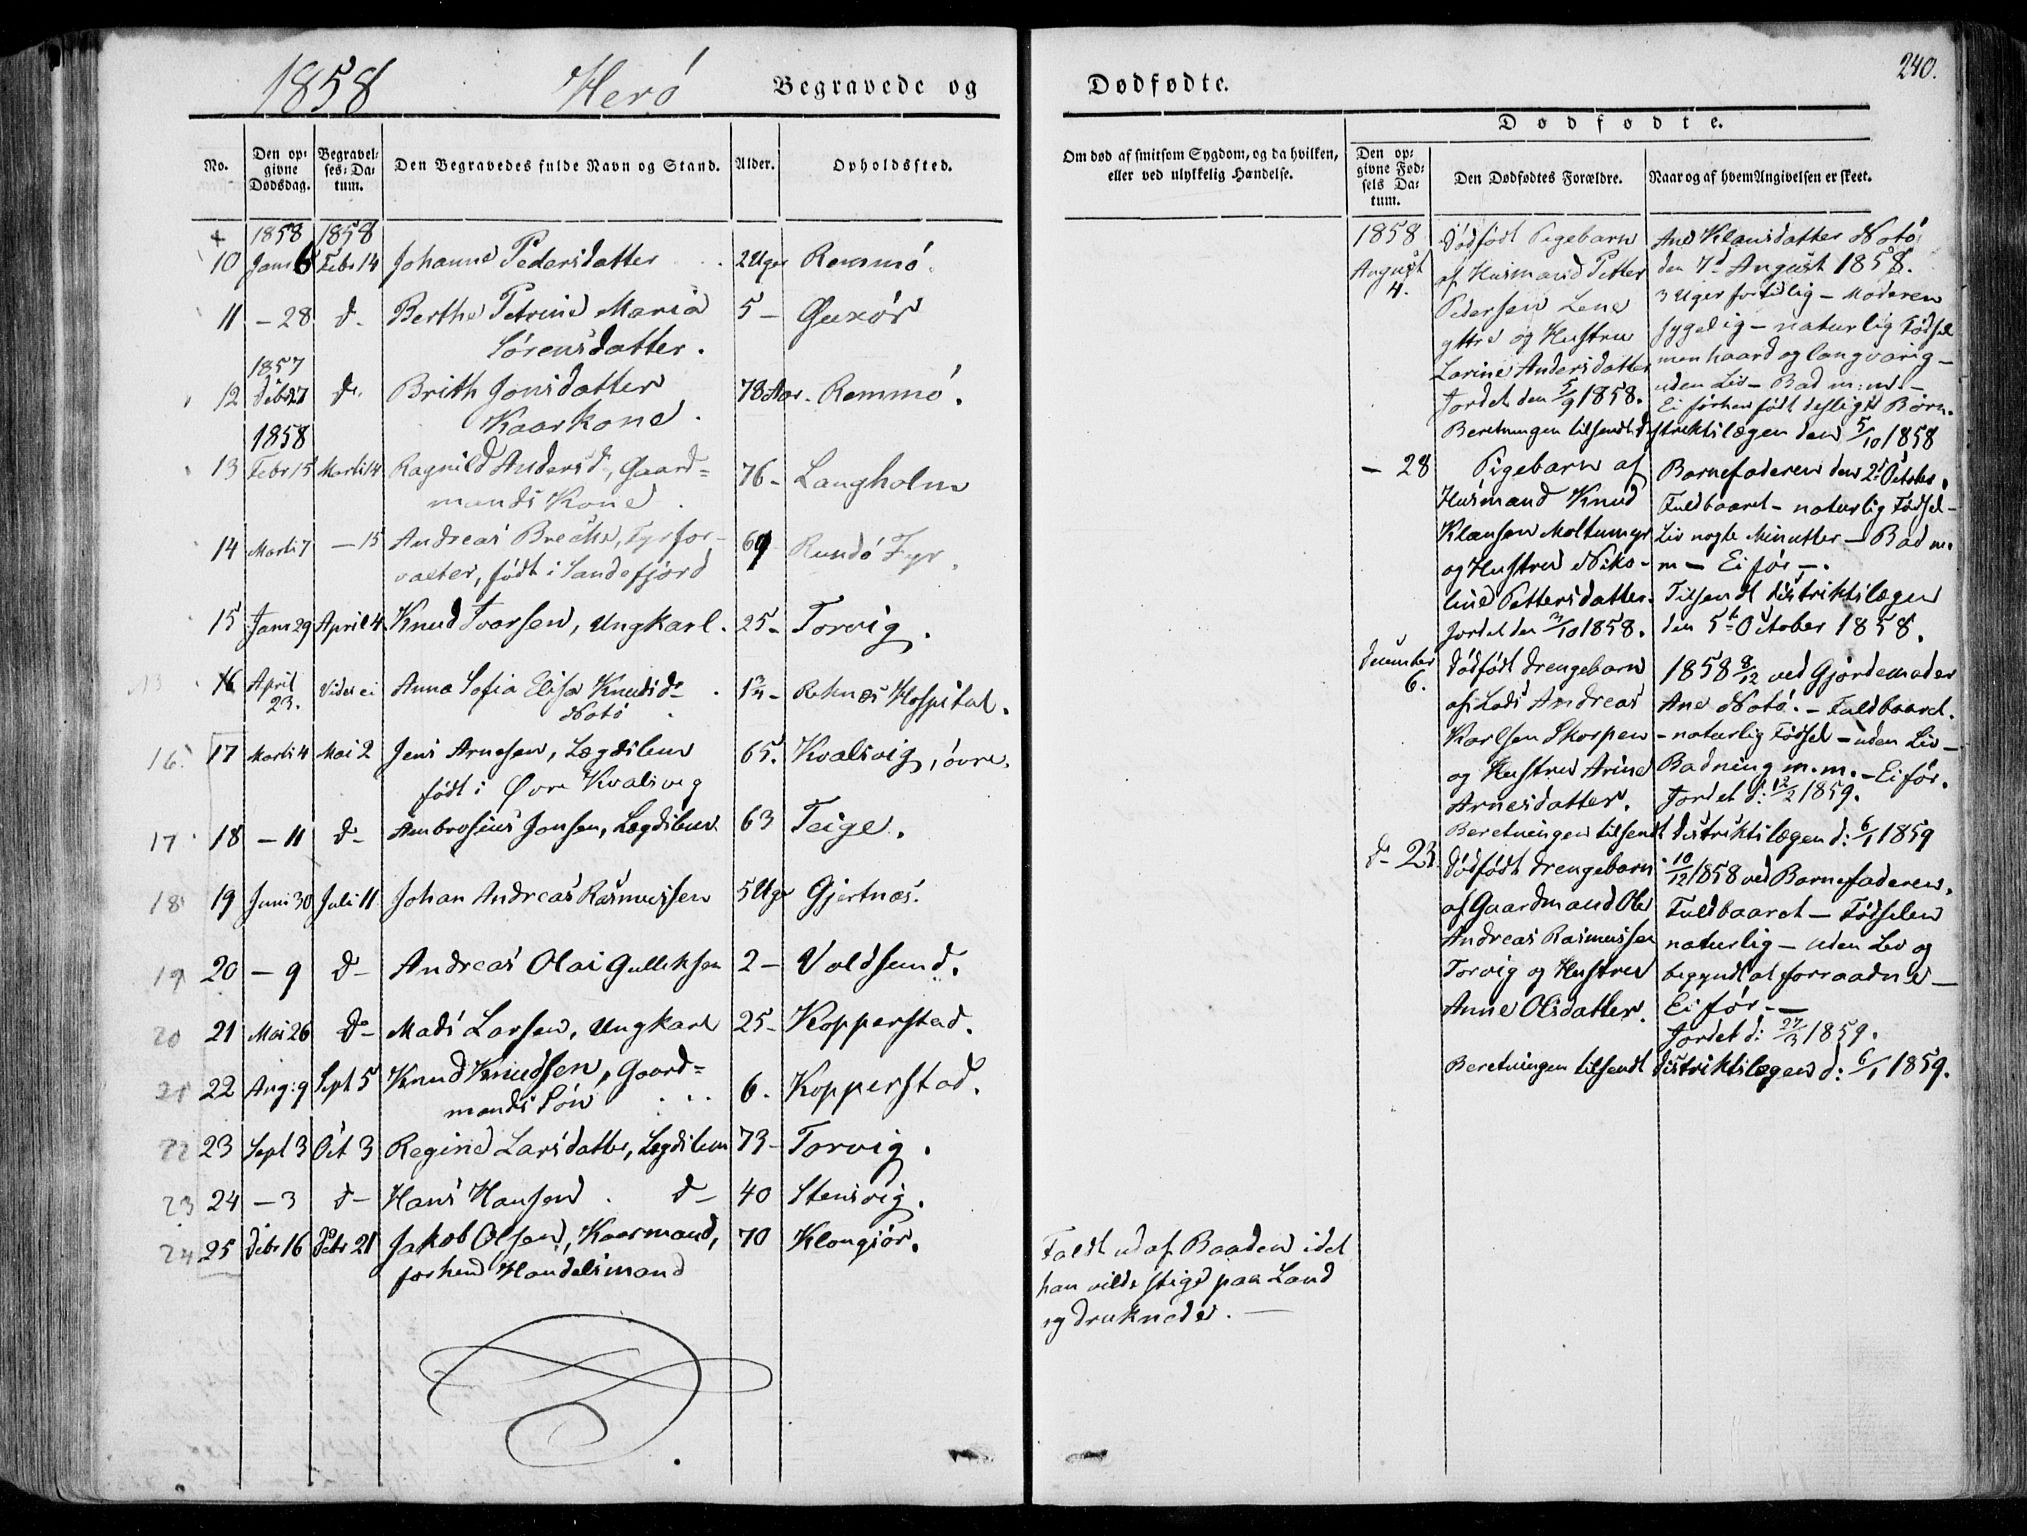 1858 Herö Begravede og
No. Den op-givne Dødsdag. Begravel-ses-Da-tum. Den Begravedes fulde Navn og Stand. Alder. Opholdssted.
1858 1858
10 Janr 6 Febr 14 Johanne Pedersdatter 2 Uger Remmö.
11 - 28 d- Berthe Petrine Maria 5 - Guxör
Sörensdatter.
1857
12 Debr 27 d- Brith Jonsdatter 78 Aar. Remmö.
Kaarkone.
1858
13 Febr 15 Marti 14 Ragnild Andersd, Gaard= 76 - Langholm
mands Kone
14 Marti 7 - 15 Andreas Breche, Fyrfor- Rundö Fyr.
valter, födt i Sandefjord
15 Janr 29 April 4 Knud Ivarsen, Ungkarl. 25 - Torvig.
16 April 23. Vides ei Anna Sofia Elisa Knudsd- Reknæs Hospital.
Notö
16. 17 Marti 4 Mai 2 Jens Arnesen, Lægdslem 65. Kvalsvig, övre.
födt i Øvre Kvalsvig
17 18 - 11 d- Ambrosius Jonsen, Lægdslem 63 Teige.
18 19 Juni 30 Juli 11 Johan Andreas Rasmussen 5 Uger Gjertnæs.
19 20 - 9 d- Andreas Olai Gulliksen 2 - Voldsund.
20 21 Mai 26 d- Mads Larsen, Ungkarl 25 - Kopperstad.
21 22 Aug: 9 Sept 5 Knud Knudsen, Gaard= 6. Kopperstad.
mands Sön
22 23 Sept 3 Oct 3 Regine Larsdatter, Lægdslem 73 - Torvig.
23 24 - 3 d- Hans Hansen d- 40 Stensvig.
24 25 Debr 16 Debr 21 Jakob Olsen, Kaarmand, 70 Klongsör.
forhen Handelsmand
240.
Dødfødte.
Dødfødte.
Om død af smitsom Sygdom, og da hvilken,
eller ved ulykkelig Hændelse.
Den op-givne Fød-sels Da-tum. Den Dødfødtes Forældre. Naar og af hvem Angivelsen er skeet.
Faldt ud af Baaden idet
han vilde stige paa Land
og druknede. -
1858 Dödfödt Pigebarn Ane Klausdatter Notö
August 4. af Husmand Petter den 7d August 1858.
Pedersen Lene 3 Uger fortidlig - Moderen
yttre og Hustru sygelig - naturlig Födsel
Larine Andersdatter men haard og langvarig -
Jordet den 5/9 1858. uden Liv - Bad m: m: -
Ei förhen födt desligt Börn.
Beretningen tilsendt distriktslægen den 5/10 1858
- 28 Pigebarn af Barnefaderen den 2d October.
Husmand Knud Fuldbaaret - naturlig Födsel -
Klausen Moltumyr Liv nogle Minutter - Bad m.
og Hustru Niko- m - Ei för -.
line Pettersdatter. Tilsendt distriktslægen
Jordet den 3/10 1858. den 5t October 1858.
December 6. Dödfödt drengebarn 1858 8/12 ved Gjordemoder
af Lods Andreas Ane Notö. - Fuldbaaret.
Karlsen Skorpen - naturlig Födsel - uden Liv -
og Hustru Arine Badning m. m. - Ei för.
Arnesdatter. Jordet d: 12/2 1859.
Beretningen tilsendt distriktslægen d: 6/1 1859
d- 23. Dödfödt drengebarn 1858 ved Barnefaderen.
af Gaardmand Ole Fuldbaaret - Födselen
Andreas Rasmussen naturlig - uden Liv og
Torvig og Hustru begyndt at forraadne -
Anne Olsdatter. Ei för. -
Jordet d: 27/3 1859.
Beretningen tilsendt distriktslægen d: 6/1 1859.